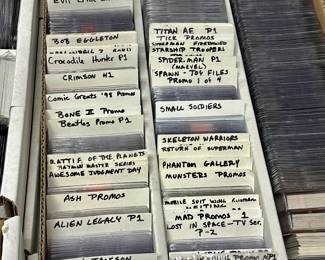 BOB EGGLETON
Crocodile Hunter P1
CRIMSON #1
Comic Greats '98 Promo
BONE II Promo
Beatles Promo P1
BATTLE OF THE PLANETS
BATMAN MASTER SERIES
AWESOME JUDGMENT DAY
ASH PROMOS
ALIEN LEGACY P1
TITAN AE P1
TICK PROMOS
STARSHIP TROOPERS
SPIDER-MAN P1
(MARVEL)
SPAWN - TOY FILES
Promo 1 of 4
SMALL SOLDIERS
SKELETON WARRIORS
RETURN OF SUPERMAN
PHANTOM GALLERY
MUNSTERS PROMO
MOBILE SUIT WING GUNDAM
MAD PROMOS 1
LOST IN SPACE - TV Ser.
P-2